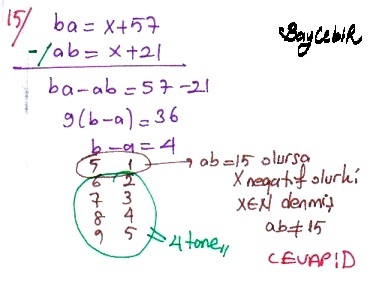 15/
BAYCEBİR
ba = x+57
-/ab = x+21
ba-ab = 57-21
9(b-a) = 36
b-a = 4
5 1 → ab=15 olursa
6 2 X negatif olurki
7 3 XEN denmiş
8 4 ab≠15
9 5 → 4 tane,,
CEVAP İD